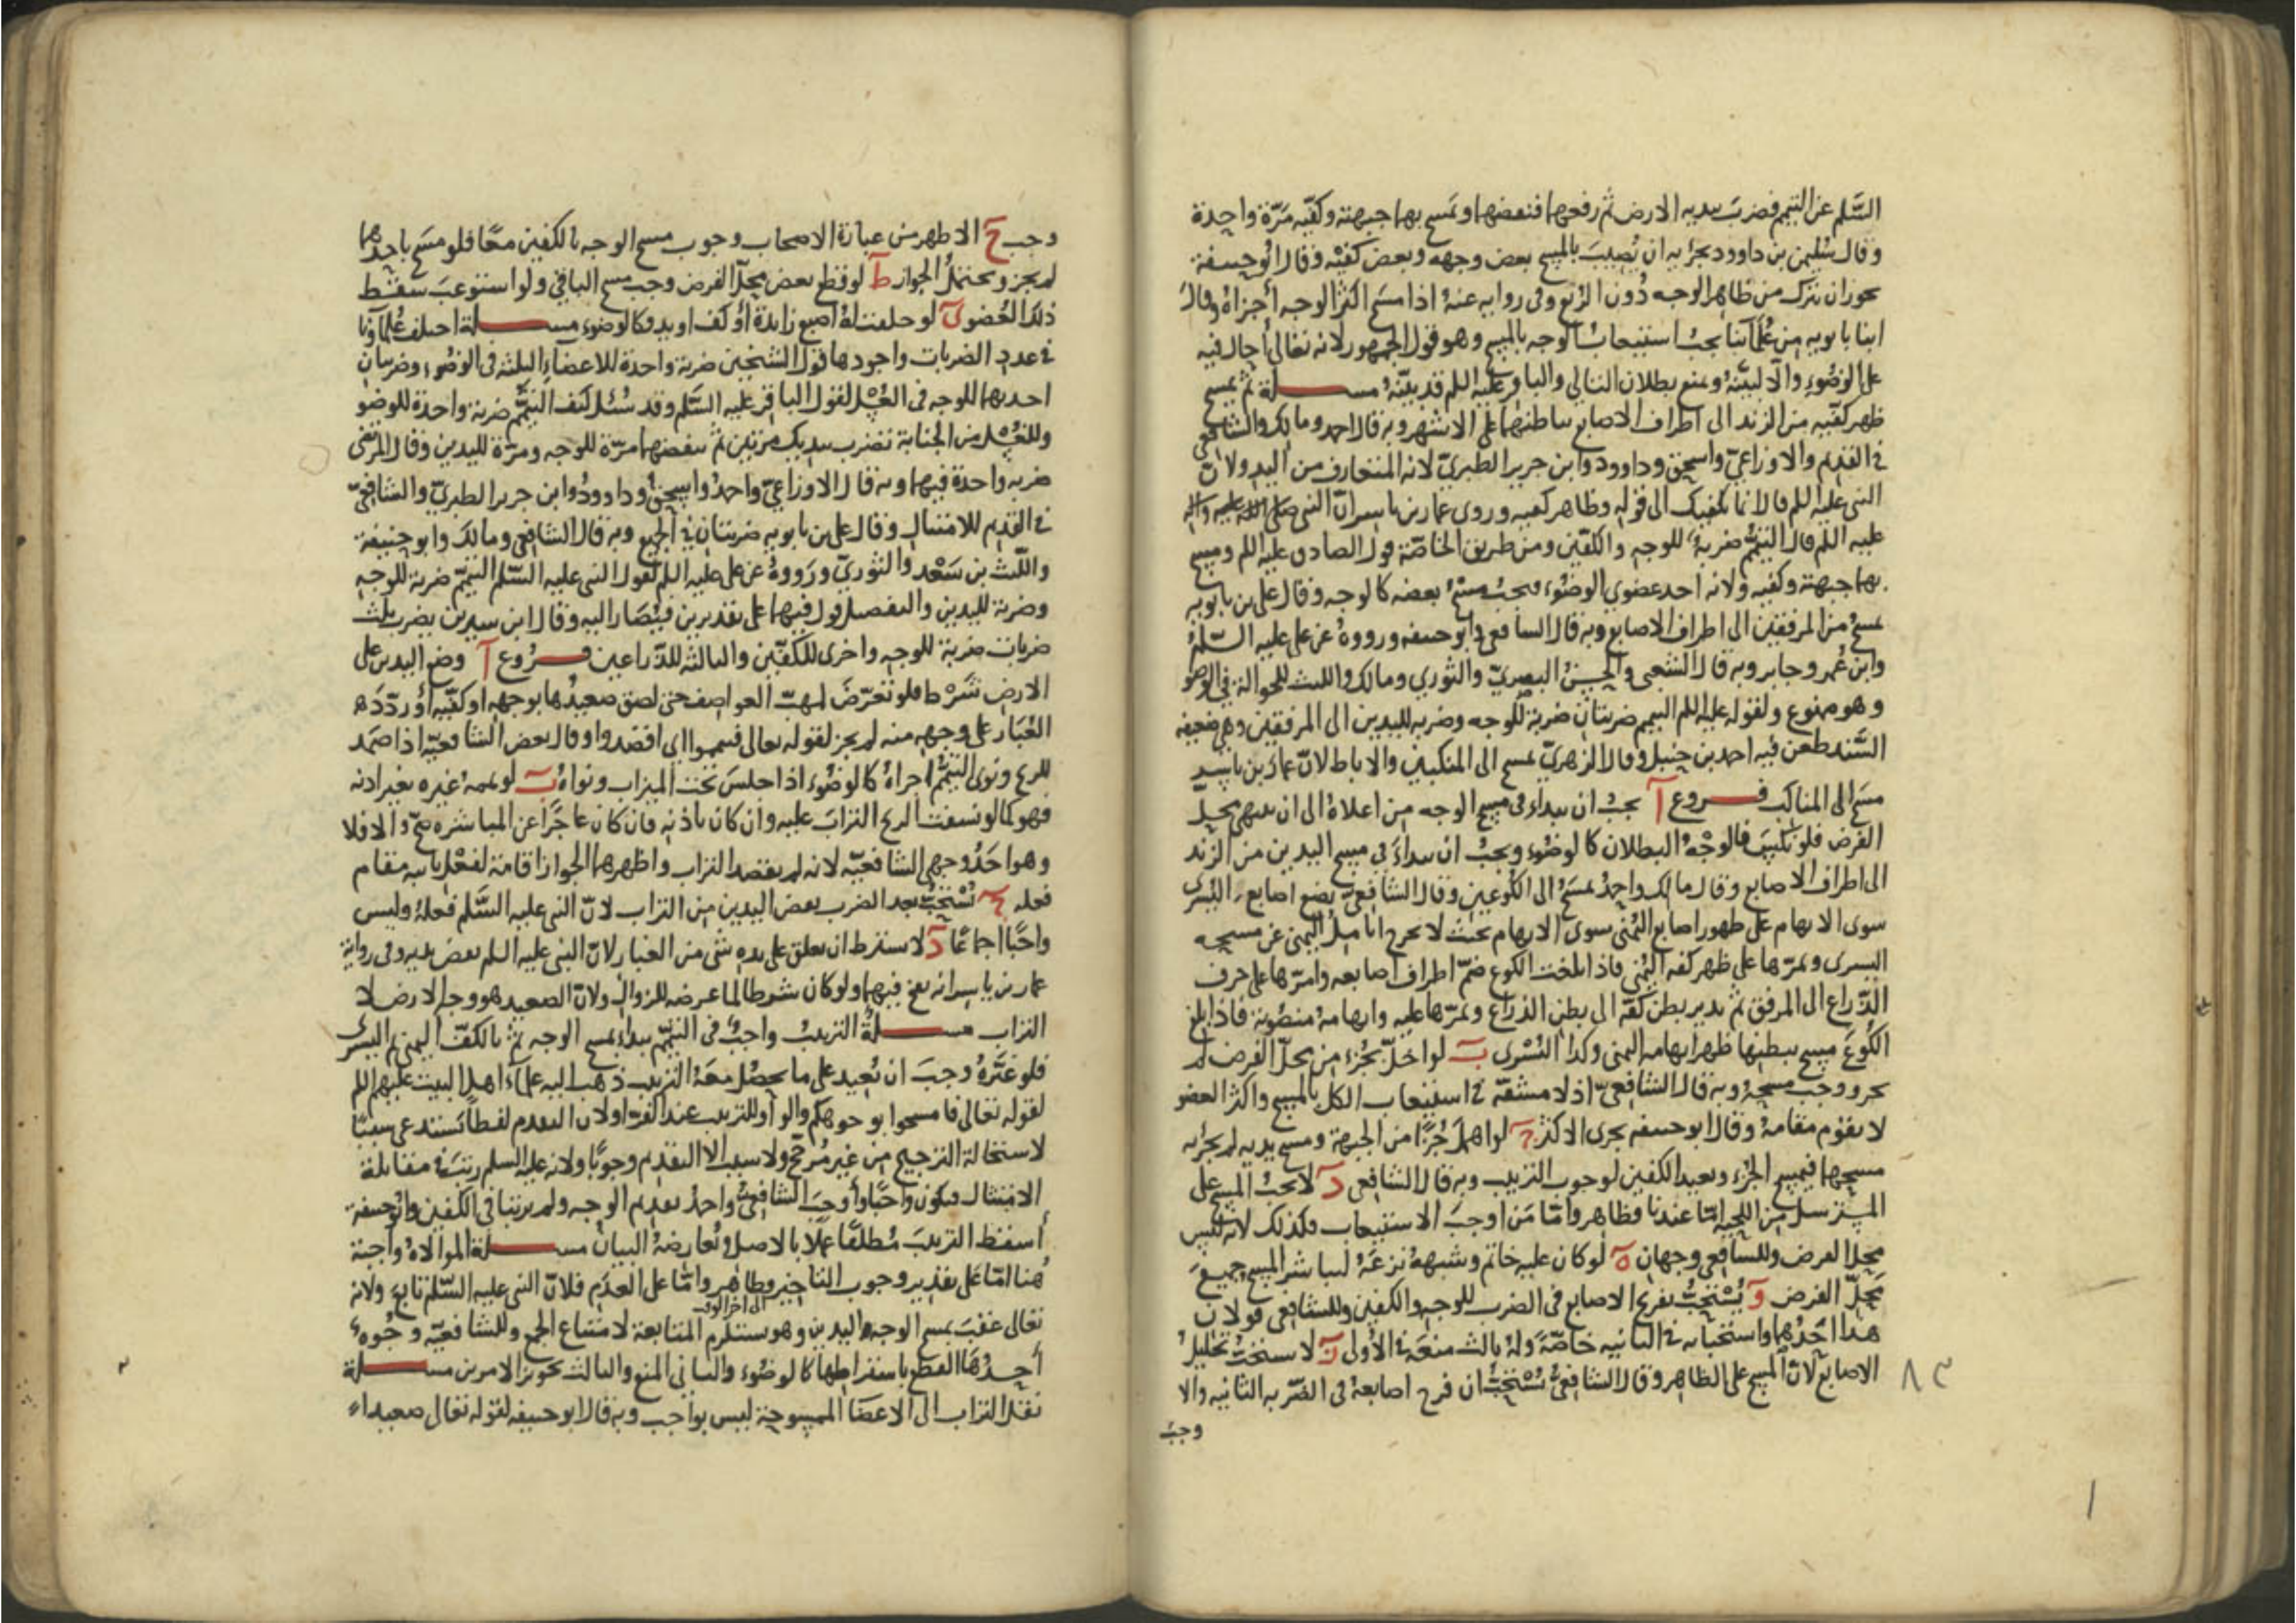 السّلم عن التيمم فضرب بيديه الارض ثم رفعها فنفضها ومسح بها جبهته وكفّيه مرّة واحدة
وقال سليمن بن داوود يجزيه ان يُصيب بالمسح بعض وجهه وبعض كفيْه وقال ابُو حنيفة
يجوز ان يترك من ظاهر الوجه دُون الرّبع وفي روايه عنهُ اذا مسَح اكثر الوجه أجزاهُ وقال
ابنا بابويه من عُلمآئنا يجبُ استيعابُ الوجه بالمسح وهو قول الجمهور لانه تعالى أحال فيه
على الوضُوء والّا لبيّنهُ ويمنع بطلان التالي والباقر عليه اللم قد بيّنهُ مسـلة ثم يمسح
ظهر كفّيه من الزند الى اطراف الاصابع بباطنهما على الاشهر وبه قال احمد ومالك والشافعي
في القديم والاوزاعيّ واسحق وداوود وابن جرير الطبريّ لانه المتعارف من اليد ولانّ
النبي عليه اللم قال انما يكفيك الى قوله وظاهر كفيه وروى عمار بن ياسر انّ النبي صلى الله عليه واله
عليه اللم قال التيمّم ضربةٌ للوجه والكفّين ومن طريق الخاصّة قول الصادق عليه اللم ومسح
بها جبهته وكفيه ولانه احد عضوي الوضُوء فيجبُ مسْحُ بعضه كالوجه وقال علي بن بابويه
يمسحُ من المرفقين الى اطراف الاصابع وبه قال الشافعي وابو حنيفه ورووهُ عن علي عليه السّلمُ
وابن عُمر وجابر وبه قال الشعبي والحسنُ البصريّ والثوري ومالك والليث للحوالة في الوضو
وهو ممنوع ولقوله عليه اللم التيمم ضربتان ضربة للوجه وضربه لليدين الى المرفقين وهي ضعيفه
السَّند طعن فيه احمد بن حنبل وقال الزهريّ يمسح الى المنكبين والاباط لانّ عمار بن ياسر
مسَح الى المناكب فــروع آ يجبُ ان يبداء في مسح الوجه من اعلاهُ الى ان ينتهي محلّ
الفرض فلو نكّسَ فالوجْهُ البطلان كالوضُوء ويجبُ ان يبداءَ في مسح اليدين من الزند
الى اطراف الاصابع وقال مالك واحمدُ يمسَحُ الى الكوعين وقال الشافعيّ يضع اصابع اليُسرى
سوى الابهام على ظهور اصابع اليُمنى سوى الابهام بحيث لا يخرج اناملُ اليمنى عن مسبحه
اليسرى ويمرّها على ظهر كفه اليُمنى فاذا بلغت الكوع ضمّ اطراف اصابعه وامرّها على حرف
الذّراع الى المرفق ثم يدير بطن كفّه الى بطن الذراع ويمرّها عليه وابهامهُ منصُوبة فاذا بلغ
الكُوعَ مسح ببطنها ظهر ابهامه اليمنى وكذا اليُسْرى بَ لو اخلّ بجُزء من محلّ الفرض لم
يجز ووجب مسحهُ وبه قال الشافعيّ اذ لا مشقّة في استيعاب الكل بالمسح واكثر العضو
لا يقوم مقامهُ وقال ابو حنيفه يجزي الاكثر جَ لو اهمل جُزءًا من الجبهة ومسح يديه لم يجزْيه
مسحها فيمسح الجُزء ويعيد الكفين لوجوب الترتيب وبه قال الشافعي دَ لا يجبُ المسح على
المسترسل من اللحيه امّا عندنا فظاهر وامّا مَن اوجبَ الاستيعاب فكذلك لانه ليس
محلا للفرض وللشافعي وجهان هَ لو كان عليه خاتم وشبههُ نزعَهُ ليباشر المسح جميعَ
مَحلّ الفرض وَ يُسْتحبُّ تفريج الاصابع في الضرب للوجه والكفين وللشافعي قولان
هذا احَدُهما واستحبابه في الثانيه خاصّةً ولهُ ثالث منعهُ في الاُولى زَ لا يستحبُّ تخليلُ
الاصابع لانّ المسح على الظاهر وقال الشافعيُّ يُسْتحبُّ ان فرج اصابعهُ في الضّربه الثانيه والا
وجبَ
٨٣
وجب حَ الاظهر من عبارة الاصحاب وجوب مسح الوجه بالكفين معًا فلو مسَح باحديهما
لم يجز ويحتملُ الجواز طَ لو قطع بعض محلّ الفرض وجب مسح الباقي ولو استوعبَ سقط
ذلك العُضو يَ لو خلقت لهُ اصبع زايدة أو كف او يد فكالوضوء مســلة اختلف عُلمآؤنا
في عدد الضربات واجودها قول الشيخين ضربة واحدة للاعضاء الثلثه في الوضُوء وضربتان
احديهما للوجه في الغُسْل لقول الباقر عليه السَّلم وقد سُئل كيف التيمّم ضربة واحدة للوضو
وللغُسْل من الجنابة تضرب بيديك مرّتين ثم تنفضهما مرّة للوجه ومرّة لليدين وقال المرتضى
ضربه واحدة فيهما وبه قال الاوزاعيّ واحمدُ واسحقُ وداوودُ وابن جرير الطبريّ والشافعيّ
في القديم للامتثال وقال علي بن بابويه ضربتان في الجميع وبه قال الشافعي ومالك وابو حنيفة
واللّيث بن سَعْد والثوريّ ورَووهُ عن علي عليه اللم لقول النبي عليه السّلم التيمّم ضربة للوجه
وضربة لليدين والتفصيل قول فيهما على تقديرين فيُصَار اليه وقال ابن سيرين يضرب ثلث
ضربات ضربة للوجه واخرى للكفّين والثالثه للذّراعين فــروع آ وضع اليدين على
الارض شَرْط فلو تعرّضَ لمهبّ العواصف حتى لصق صعيدُها بوجهه او كفّيه اوْ ردّدَه
الغُبَار على وجهه منه لم يجز لقوله تعالى فتيمموا اي اقصدوا وقال بعض الشافعيّه اذا صَمد
للريح ونوى التيمّم اجزاهُ كالوضُوء اذا جلسَ تحت الميزاب ونواهُ بَ لو يممهُ غيره بغير اذنه
فهو كما لو نسفت الريح الترابَ عليه وان كان باذنه فان كان عاجزًا عن المباشره صحّ والا فلا
وهو احَدُ وجهي الشافعيّه لانه لم يقصد التراب واظهرهما الجواز اقامة لفعْل نايبه مقام
فعله جَ يُسْتحبُّ بعد الضرب نفض اليدين من التراب لانّ النبي عليه السَّلم فعلهُ وليس
واجبًا اجماعًا دَ لا يشترط ان يعلق على يده شئ من الغبار لانّ النبي عليه اللم نفض يديه وفي رواية
عمار بن ياسر انه نفخ فيهما ولو كان شرطا لما عرضه للزوال ولانّ الصعيد هو وجه الارض لا
التراب مســلةُ الترتيبُ واجبٌ في التيمّم يبداء بمسح الوجه ثم بالكفّ اليمنى ثم اليسرى
فلو غيَّرهُ وجبَ ان يُعيد على ما يحصُل معَهُ الترتيب ذهب اليه علمآءُ اهل البيت عليهم اللم
لقوله تعالى فامسحوا بوجوهكم والواو للترتيب عند الفرّاء ولان التقديم لفظًا يستدعي سببًا
لاستحالة الترجيح من غير مُرجّح ولا سبب الا التقديم وجوبًا ولانه عليه السلم رتّبَ في مقابلة
الامتثال فيكون واجبًا واوجبَ الشافعيُّ واحمدُ تقديم الوجه ولم يرتبا في الكفين وابُو حنيفة
أسقط الترتيبَ مُطلقًا عملًا بالاصل وتُعارضهُ البيانُ مســلة الموالاهُ واجبة
هُنا امّا على تقدير وجوب التاخير فظاهر وامّا على العدَم فلانّ النبي عليه السّلم تابع ولانه
الى اخر الوقت
تعالى عقبَ بمسح الوجه واليدين وهو يستلزم المتابعة لامتناع الجمع وللشافعيّه وجُوه
أحدُها القطع باشتراطها كالوضُوء والثاني المنع والثالث تجويز الامرين مســلة
نقل التراب الى الاعضا الممسوحة ليس بواجب وبه قال ابو حنيفه لقوله تعالى صعيداء